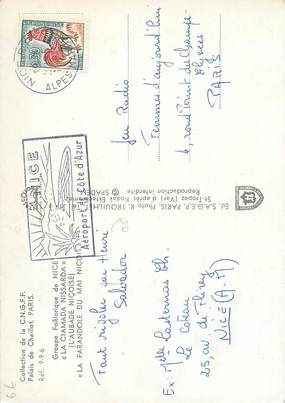 Collection de la C.N.G.F.F.
Palais de Chaillot, PARIS.
Réf. 9-9-6
Groupe Folklorique de NICE
« LA CIAMADA NISSARDA »
(L'AUBADE NIÇOISE)
« LA FARANDOLE DU MAI NIÇOIS »
NICE
Aéroport Côte d'Azur
NICE
ALPES
Faut rigoler par Henri
Salvador
Ex: Mlle
Le Coteau
25, av de Flirey
Nice (A-M)
Éd. S.A.G.E.P. PARIS. Photo R. TROUILLET
St-Tropez (Var) d'après Kodak Ektachrome
Reproduction interdite © SPADEM
Jeu Radio
Femmes d'aujourd'hui
4, rond Point des Champs-
Elysées
PARIS